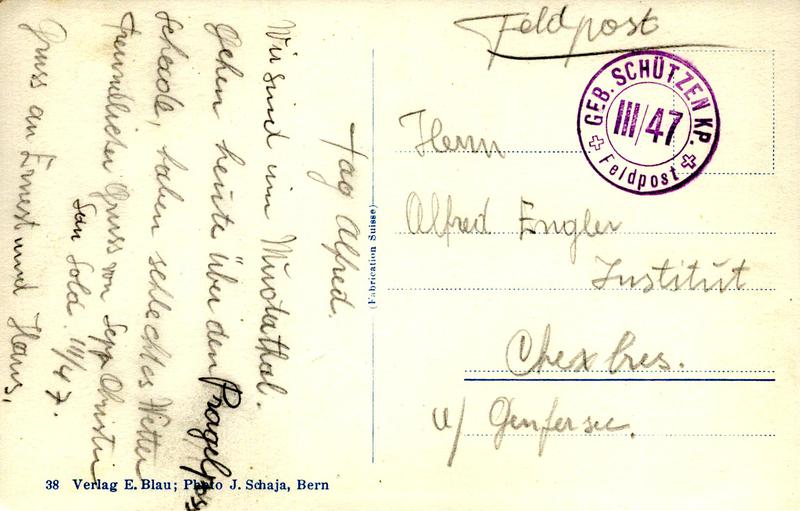 Tag Alfred.
Wir sind im Muotathal.
Gehen heute über den Pragelpass
Schade, haben schlechtes Wetter
Freundlicher Gruss von Sepp Christen
San Sold. III/47.
Gruss an Ernest und Hans,
Feldpost
GEB. SCHÜTZEN KP.
III/47
Feldpost
Herrn
Alfred Engler
Institut
Chexbres.
a/ Genfersee.
(Fabrication Suisse)
38 Verlag E. Blau; Photo J. Schaja, Bern